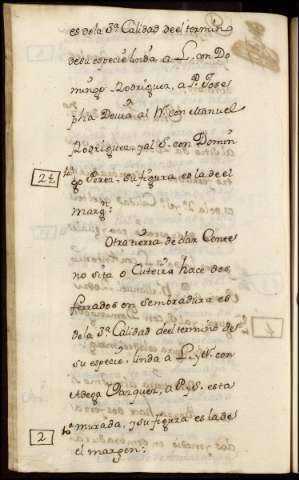 es de la 3ª Calidad de el termino
de su especie linda a L. con Do
mingo Rodriguez, a P. Jose
pha Devesa al N. con Manuel
Rodriguez, y al S. con Domin
2 f. go Perez. su figura es la de el
margn.
Otra tierra de dar Cente
no sita o Cuteiriña hace dos
ferrados en sembradura es
de la 3ª Calidad de el termino de
su especie. linda a L. y N. con
Adega Vazquez, a P. y S. esta
2 murada, y su figura es la de
el margen.